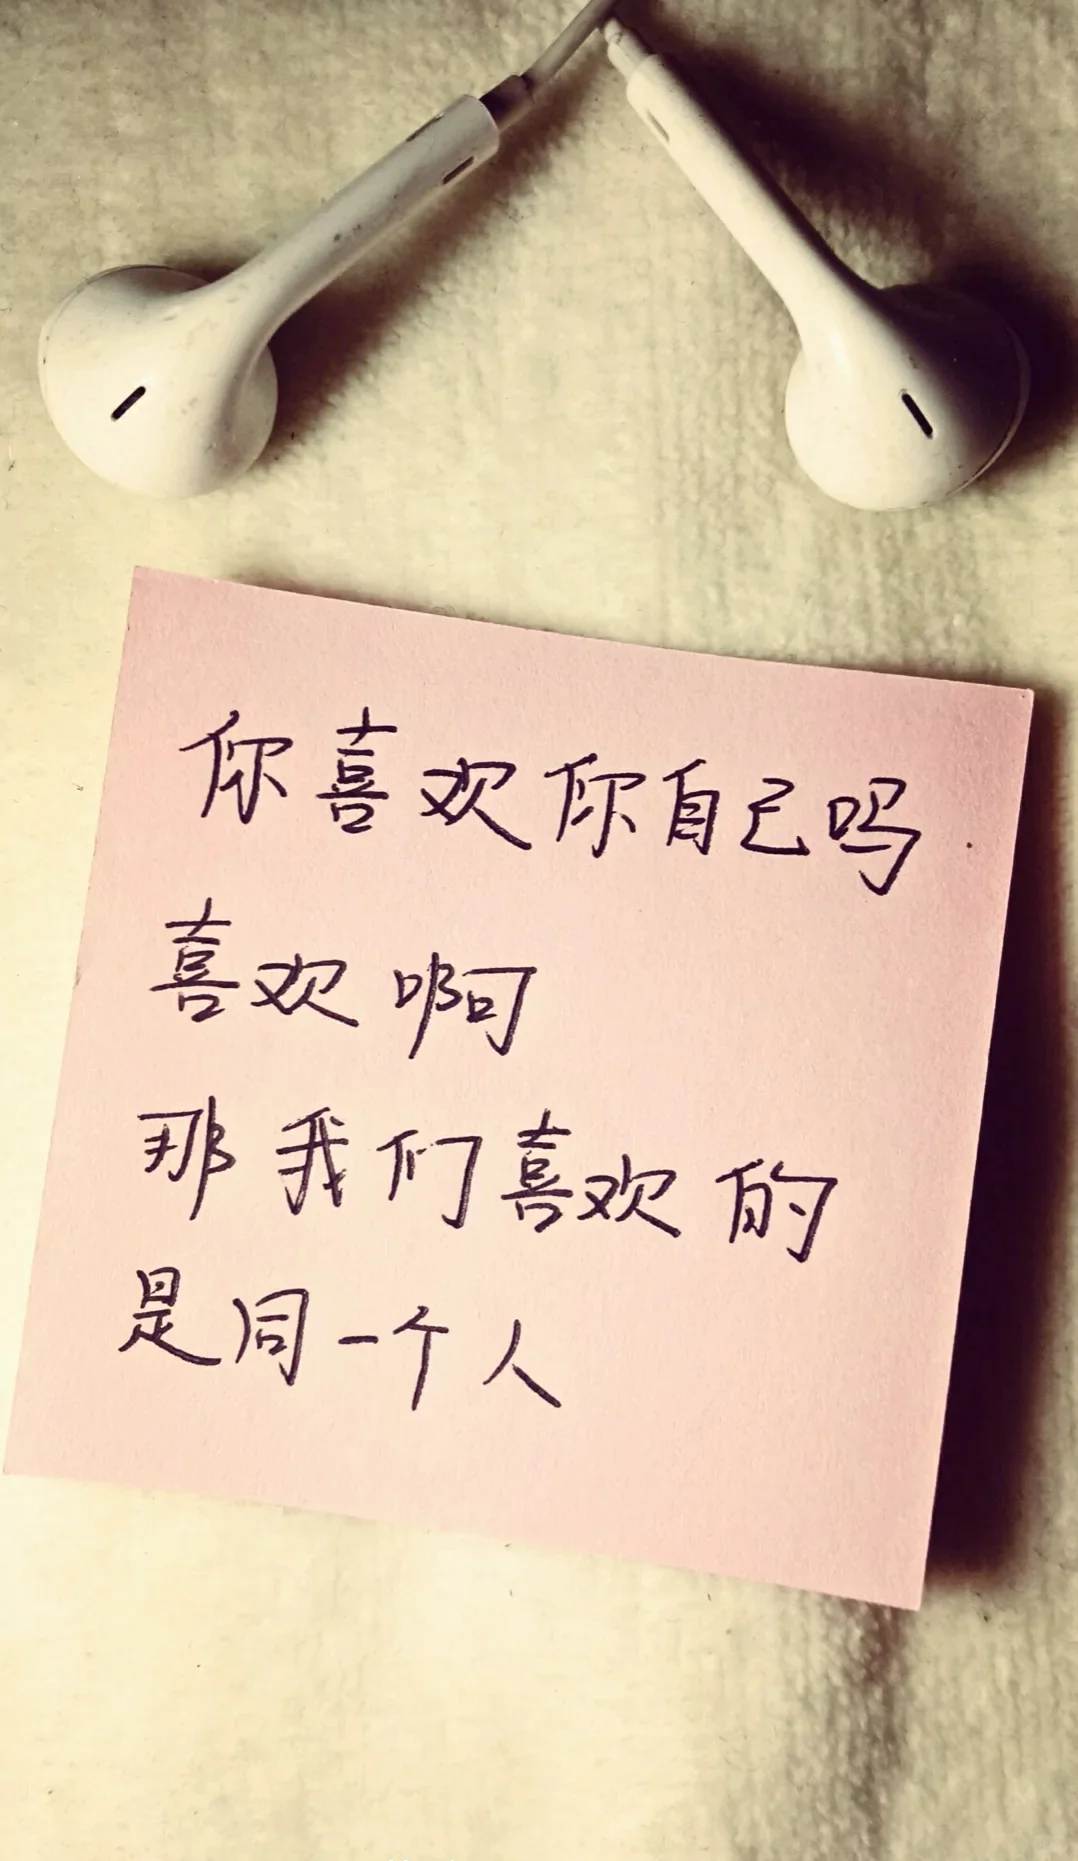 你喜欢你自己吗
喜欢啊
那我们喜欢的
是同一个人